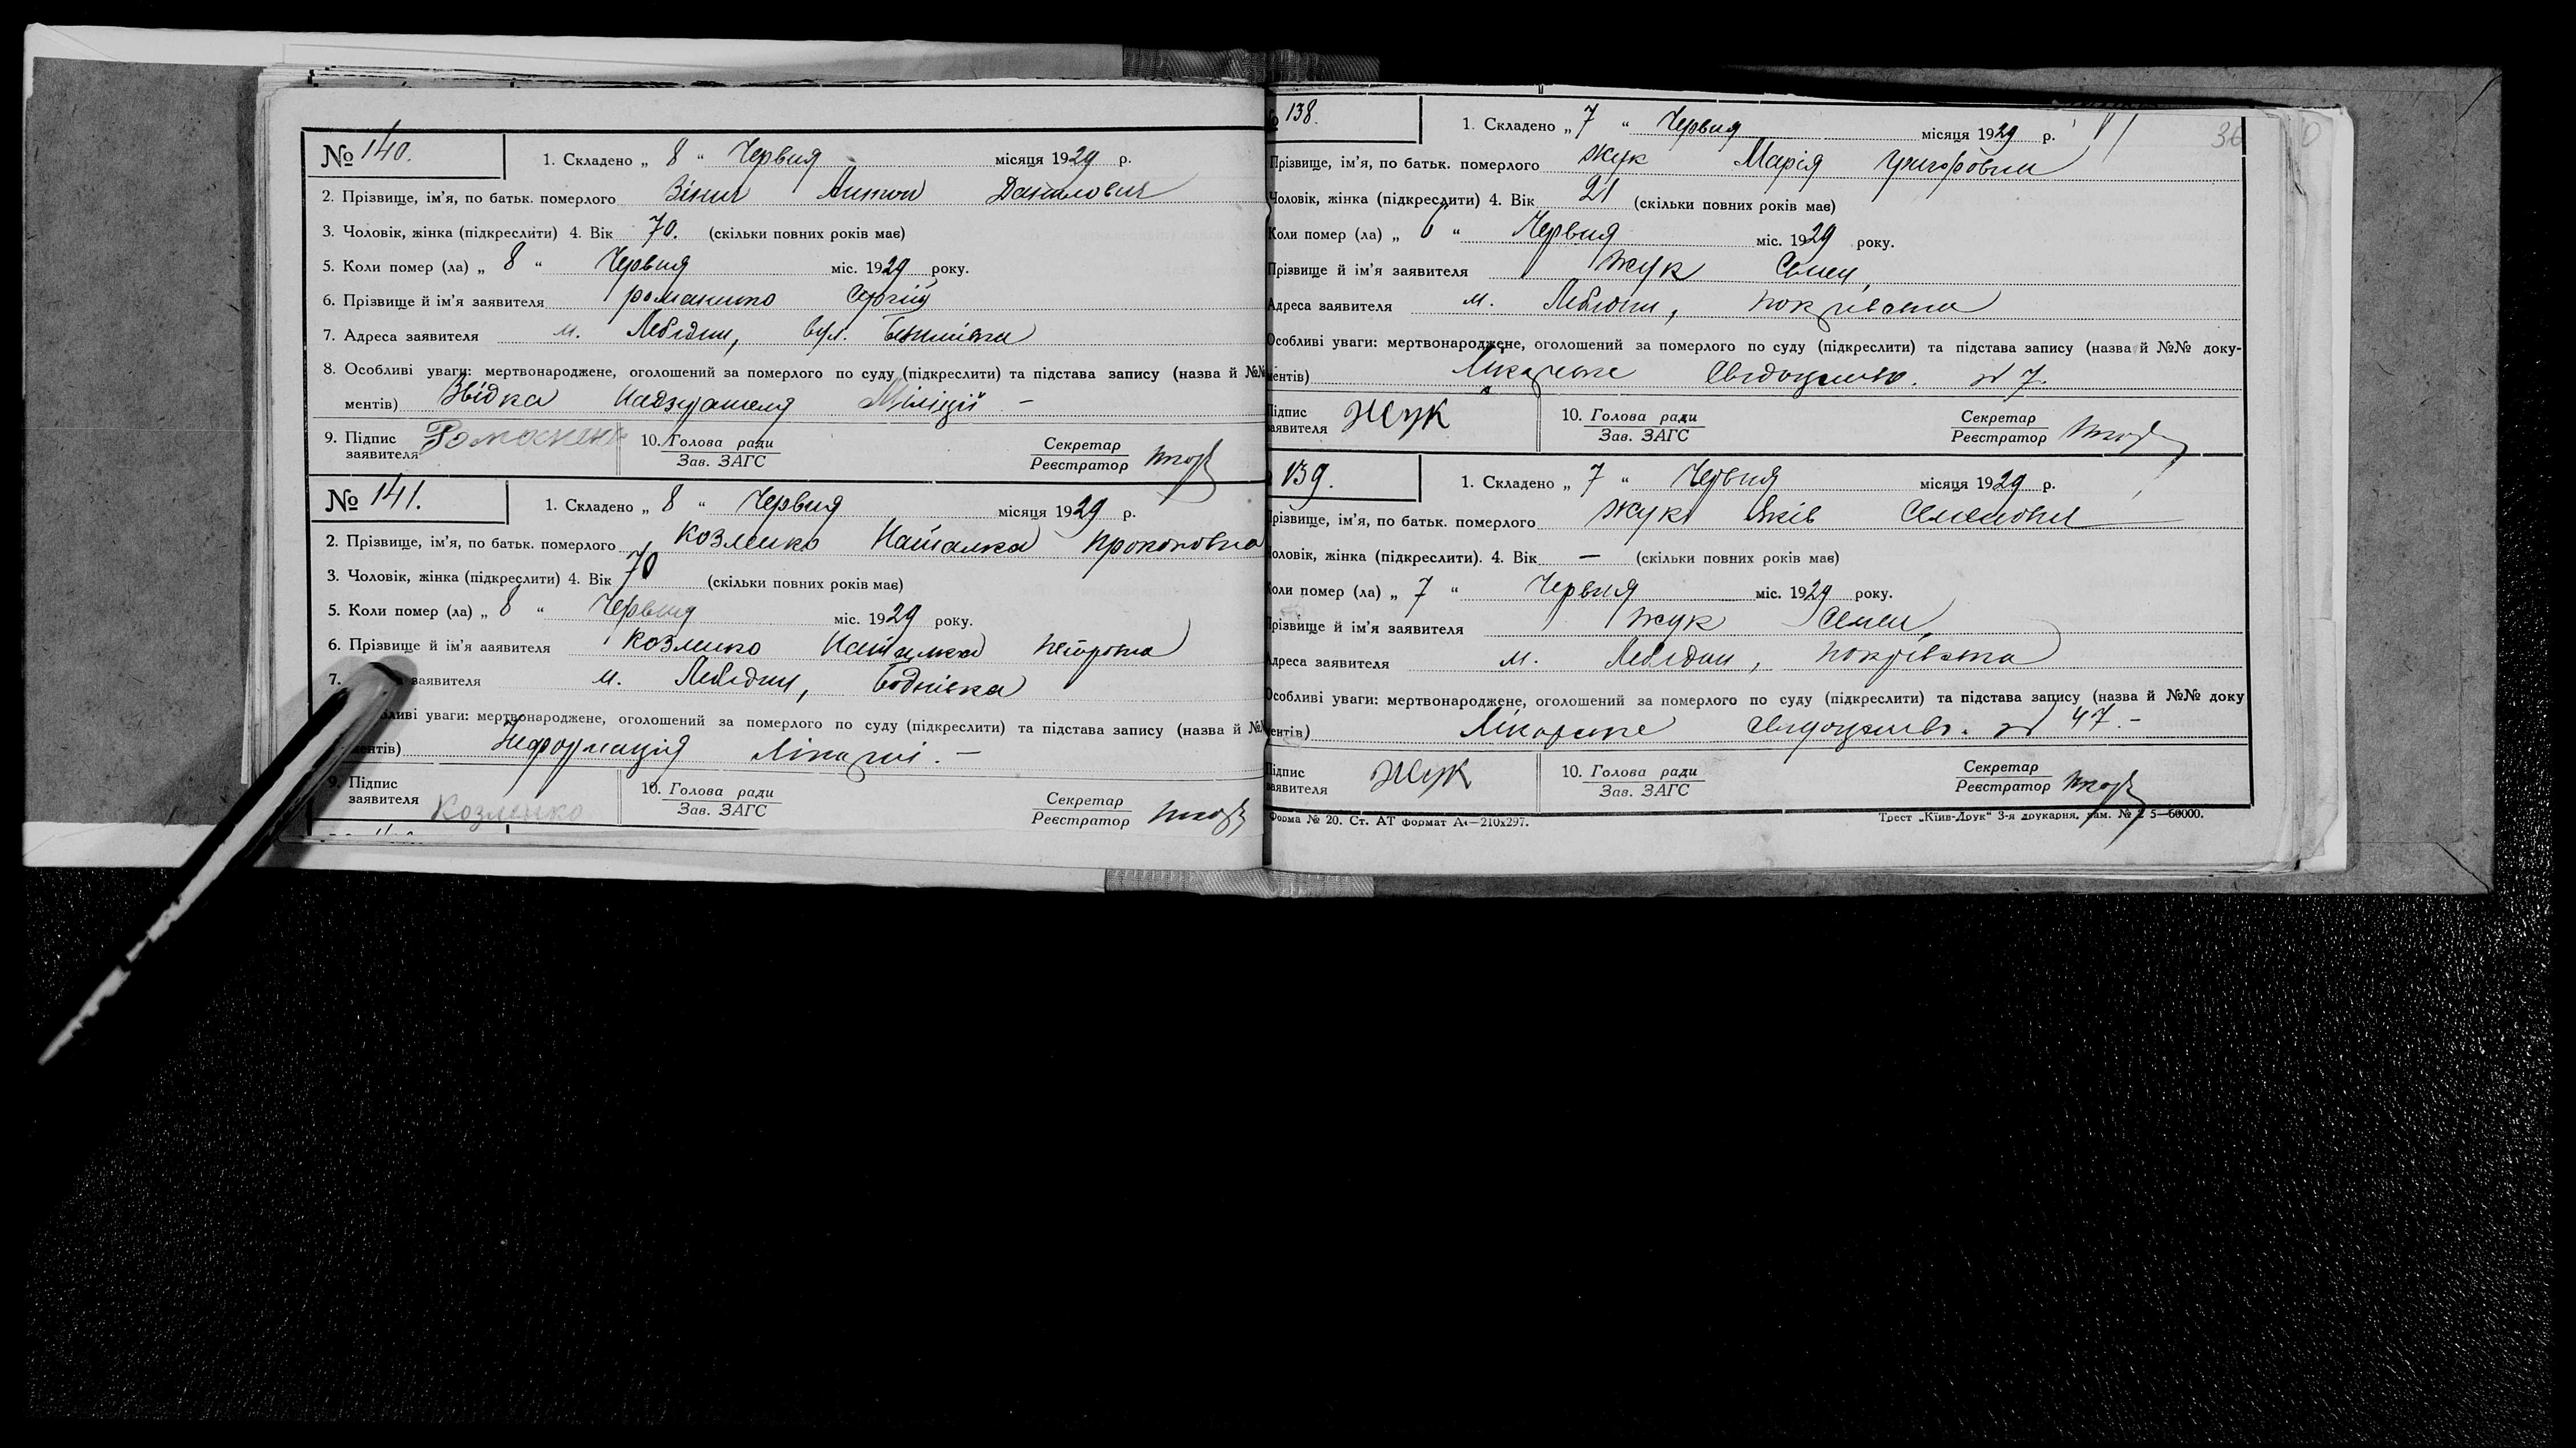 № 140.
1. Складено „ 8 “ Червня місяця 1929 р.
2. Прізвище, ім’я, по батьк. померлого Антон Данилович
3. Чоловік, жінка (підкреслити) 4. Вік 70. (скільки повних років має)
5. Коли помер (ла) „ 8 “ Червня міс. 1929 року.
6. Прізвище й ім’я заявителя Романенко Сергій
7. Адреса заявителя м. Лебедин, вул.
8. Особливі уваги: мертвонароджене, оголошений за померлого по суду (підкреслити) та підстава запису (назва й №№
ментів) Звідка Надзирателя Міліції –
9. Підпис заявителя Романенк
10. Голова ради Зав. ЗАГС
Секретар Реєстратор
№ 141.
1. Складено „ 8 “ Червня місяця 1929 р.
2. Прізвище, ім’я, по батьк. померлого Козленко Наталка Прокоповна
3. Чоловік, жінка (підкреслити) 4. Вік 70 (скільки повних років має)
5. Коли помер (ла) „ 8 “ Червня міс. 1929 року.
6. Прізвище й ім’я заявителя Козленко Наталка Петровна
7. заявителя м. Лебедин, Боднівка
ливі уваги: мертвонароджене, оголошений за померлого по суду (підкреслити) та підстава запису (назва й №
ментів) Інформація Лікарні. –
9. Підпис заявителя Козленко
10. Голова ради Зав. ЗАГС
Секретар Реєстратор
138.
1. Складено „ 7 “ Червня місяця 1929 р.
36
Прізвище, ім’я, по батьк. померлого Жук Марія Григоровна
Чоловік, жінка (підкреслити) 4. Вік 21 (скільки повних років має)
Коли помер (ла) „ “ Червня міс. 1929 року.
Прізвище й ім’я заявителя Жук Семен
Адреса заявителя м. Лебедин, Покрівська
Особливі уваги: мертвонароджене, оголошений за померлого по суду (підкреслити) та підстава запису (назва й №№ доку-
ментів) Лікарське Свідоцтво. № 7.
Підпис заявителя Жук
10. Голова ради Зав. ЗАГС
Секретар Реєстратор
139.
1. Складено „ 7 “ Червня місяця 1929 р.
Прізвище, ім’я, по батьк. померлого Жук Яків Семенович
Чоловік, жінка (підкреслити). 4. Вік – (скільки повних років має)
Коли помер (ла) „ 7 “ Червня міс. 1929 року.
Прізвище й ім’я заявителя Жук Семен
Адреса заявителя м. Лебедин, Покрівська
Особливі уваги: мертвонароджене, оголошений за померлого по суду (підкреслити) та підстава запису (назва й №№ доку
ментів) Лікарське Свідоцтво. № 47. –
Підпис заявителя Жук
10. Голова ради Зав. ЗАГС
Секретар Реєстратор
Форма № 20. Ст. АТ формат А4—210x297.
Трест „Київ-Друк“ 3-я друкарня, зам. № 5—60000.